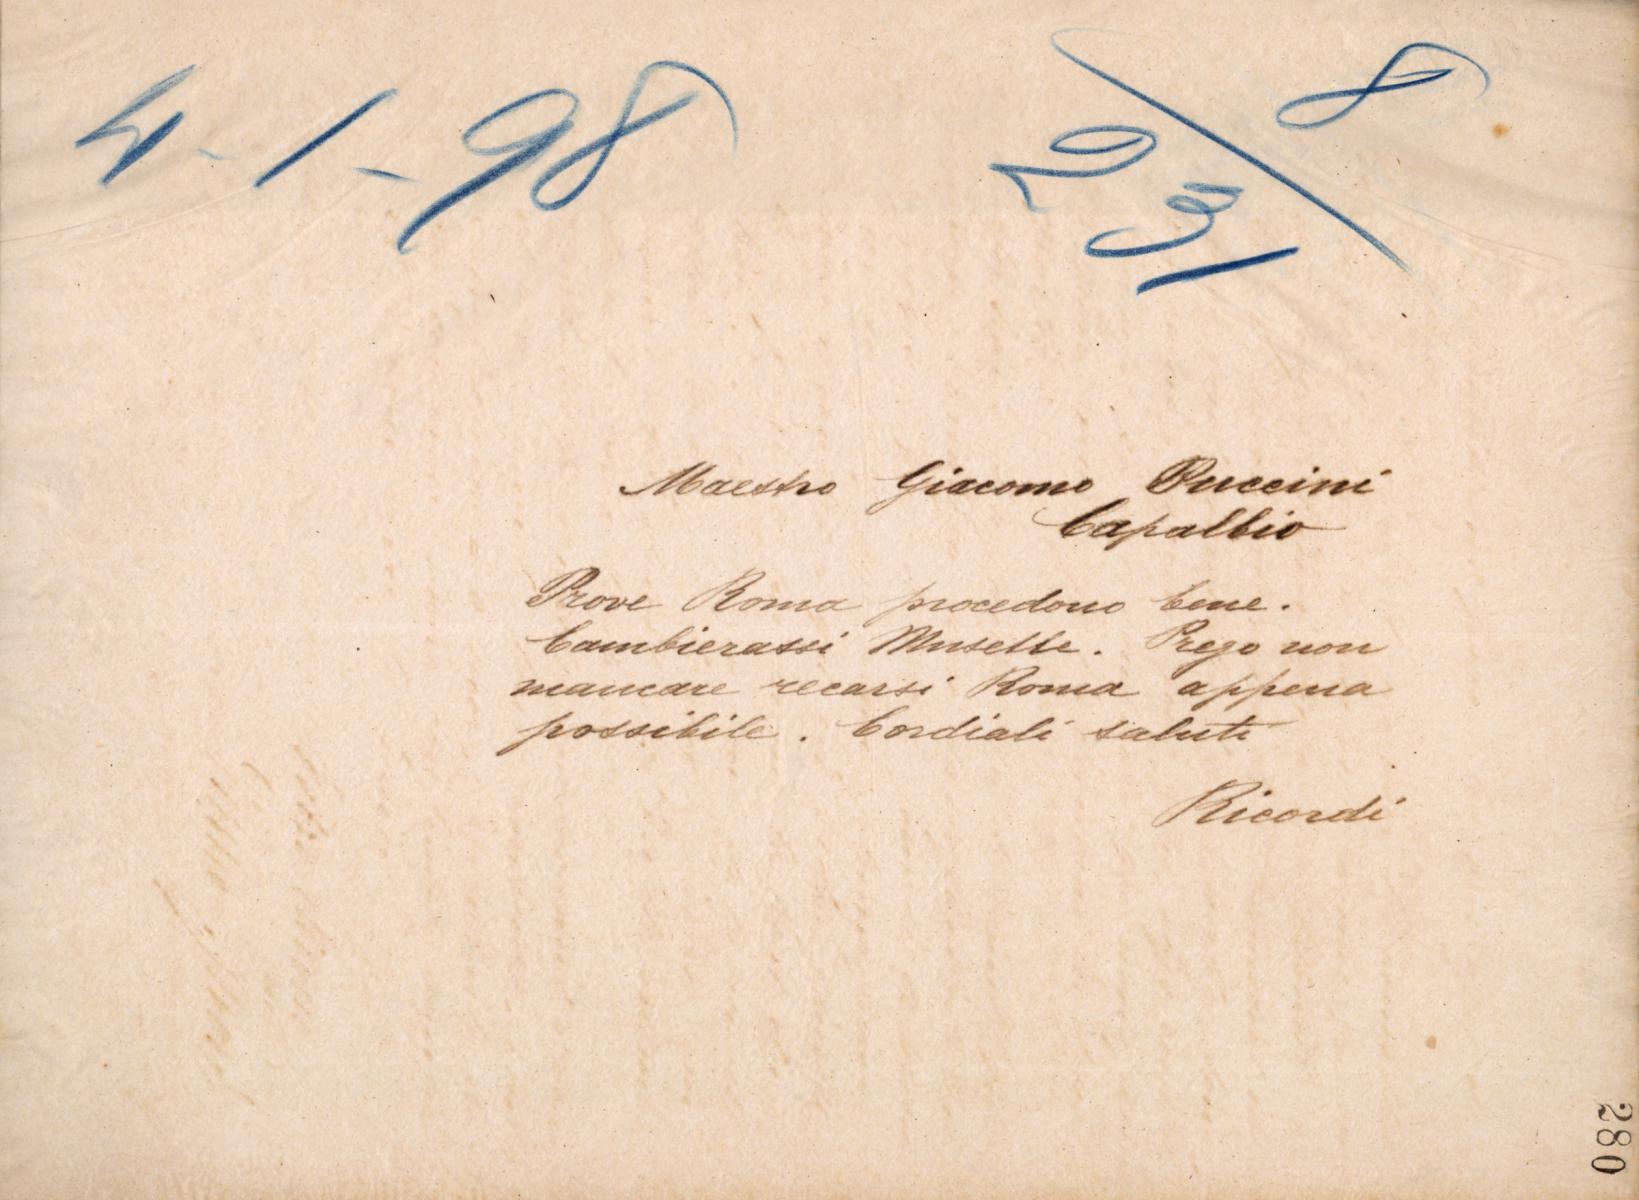 4-1-98
8/231
Maestro Giacomo Puccini
Capalbio
Prove Roma procedono bene.
Cambierassi Musette. Prego non
mancare recarsi Roma appena
possibile. Cordiali saluti
Ricordi
280